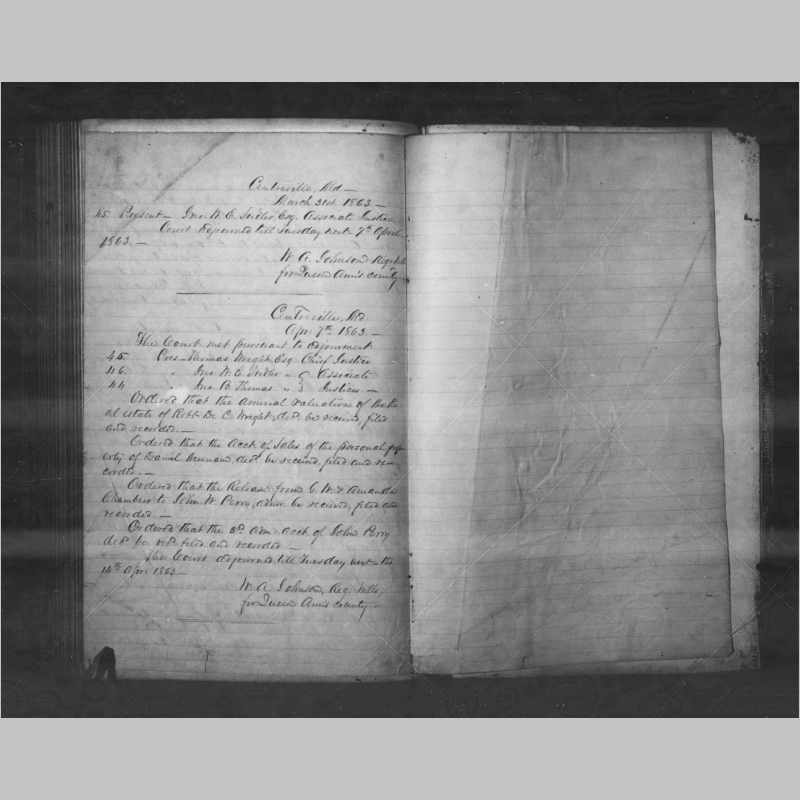 Centreville, Md —
March 31st 1863 —
45 Present — Jno. W. E. Esq. Associate Justice
Court adjourned till Tuesday next 7th April
1863. —
W. A. Johnson Reg. Wills
for Queen Ann's county
Centreville, Md.
Apr. 7th 1863 —
The Court met pursuant to adjournment
45 Pres — Thomas Wright, Esq Chief Justice
46 " Jno. W. E. " Associate
44 " Jno. B. Thomas " Justices —
Ordered that the annual valuations of the Re
al estate of Robt. De C. Wright, decd. be received, filed
and recorded. —
Ordered that the acct. of Sales of the personal prop
erty of Daniel decd. be received, filed and re-
corded. —
Ordered that the Release from C. W. & Amanda
Chambers to John W. Perry, admr. be received, filed and
recorded —
Ordered that the adm. acct. of John Perry
decd. be recd. filed and recorded —
The Court adjourned till Tuesday next the
14th Apr. 1863 —
W. A. Johnson, Reg. Wills,
for Queen Ann's county —